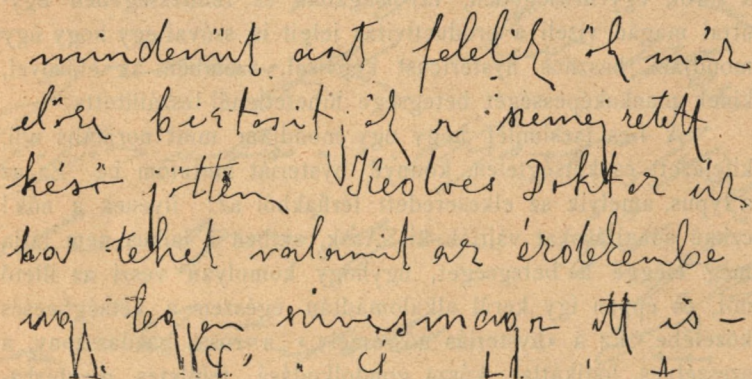 mindenüt azt felelik ők már
előre biztosit,ák a személzetett
késö jöttem Kedves Doktor úr
ha tehet valamit az érdekembe
ugy legyen szives maga itt is-